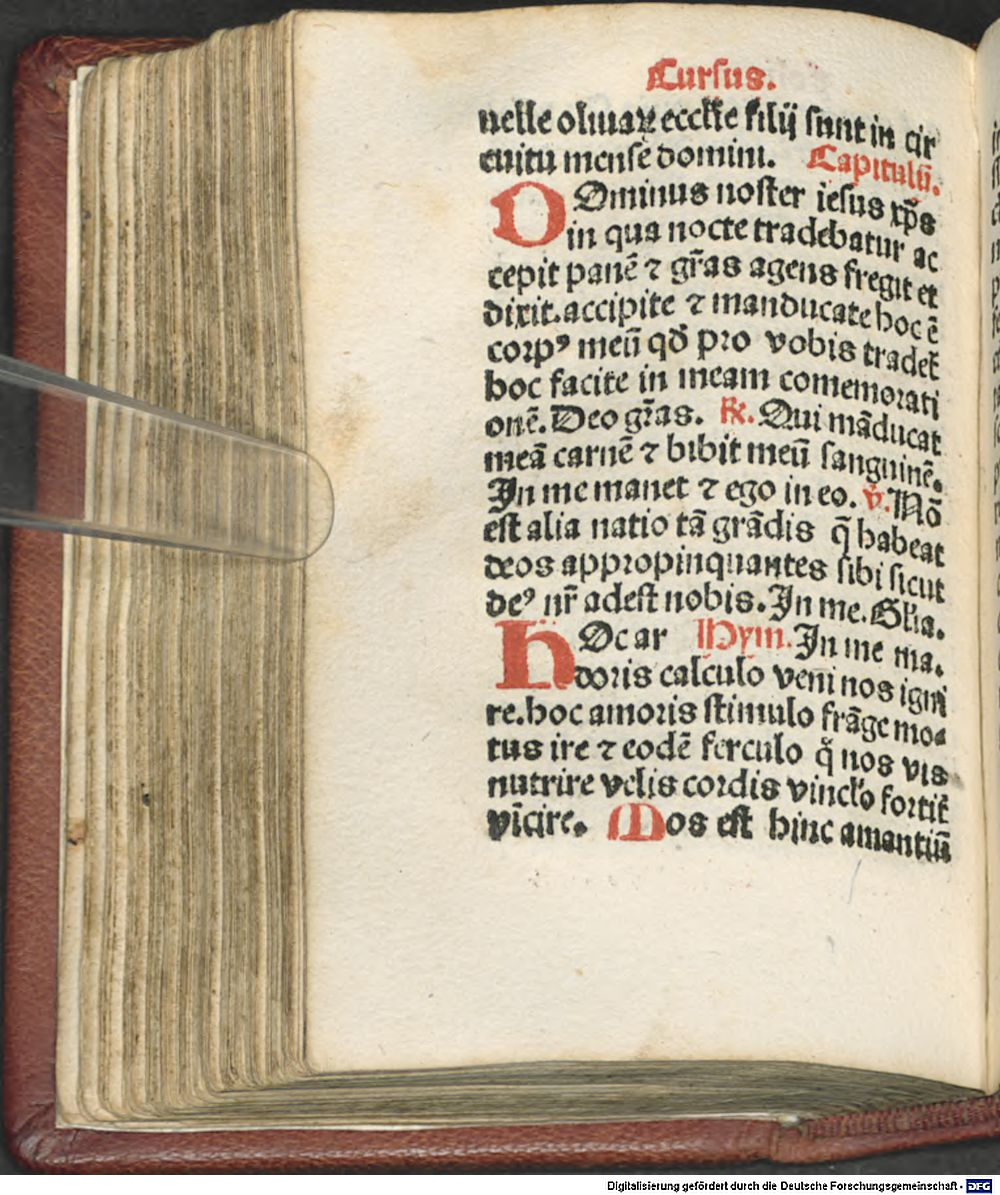 Cursus.
uelle oliuaꝝ eccłie filij sunt in cir
cuitu mense domini. Capitulū.
DOminus noster iesus xp̄s
in qua nocte tradebatur ac
cepit panē ⁊ gr̄as agens fregit et
dixit.accipite ⁊ manducate hoc ē
corpꝰ meū qd̄ pro vobis tradet᷑
hoc facite in meam comemorati
onē. Deo gr̄as. ℟. Qui māducat
meā carnē ⁊ bibit meū sanguinē.
In me manet ⁊ ego in eo. ℣. Nō
est alia natio tā grādis q̄ habeat
deos appropinquantes sibi sicut
deꝰ nr̄ adest nobis. In me. Glia.
HOc ar Hym. In me ma.
doris calculo veni nos igni
re.hoc amoris stimulo frāge mo⸗
tus ire ⁊ eodē ferculo q̄ nos vis
nutrire velis cordis vincło fortit᷑
vīcire. Mos est hinc amantiū
Digitalisierung gefördert durch die Deutsche Forschungsgemeinschaft - DFG